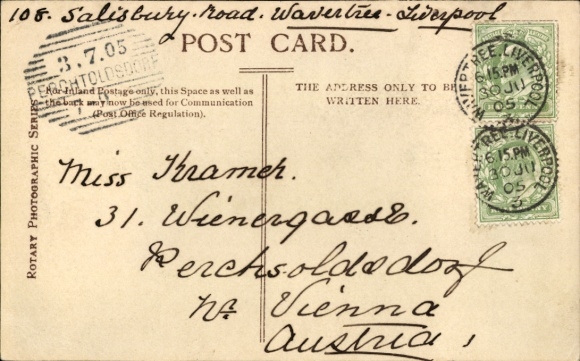 108. Salisbury. Road. Wavertree. Liverpool
POST CARD.
3.7.05
PERCHTOLDSDORF
For Inland Postage only, this Space as well as
the back may now be used for Communication
(Post Office Regulation).
THE ADDRESS ONLY TO BE
WRITTEN HERE.
ROTARY PHOTOGRAPHIC SERIES
WAVERTREE. LIVERPOOL
6.15.PM
30 JU
05
WAVERTREE. LIVERPOOL
6.15.PM
30 JU
05
Miss Kramer.
31. Wienergasse.
Perchsoldsdorf
Nr. Vienna
Austria,